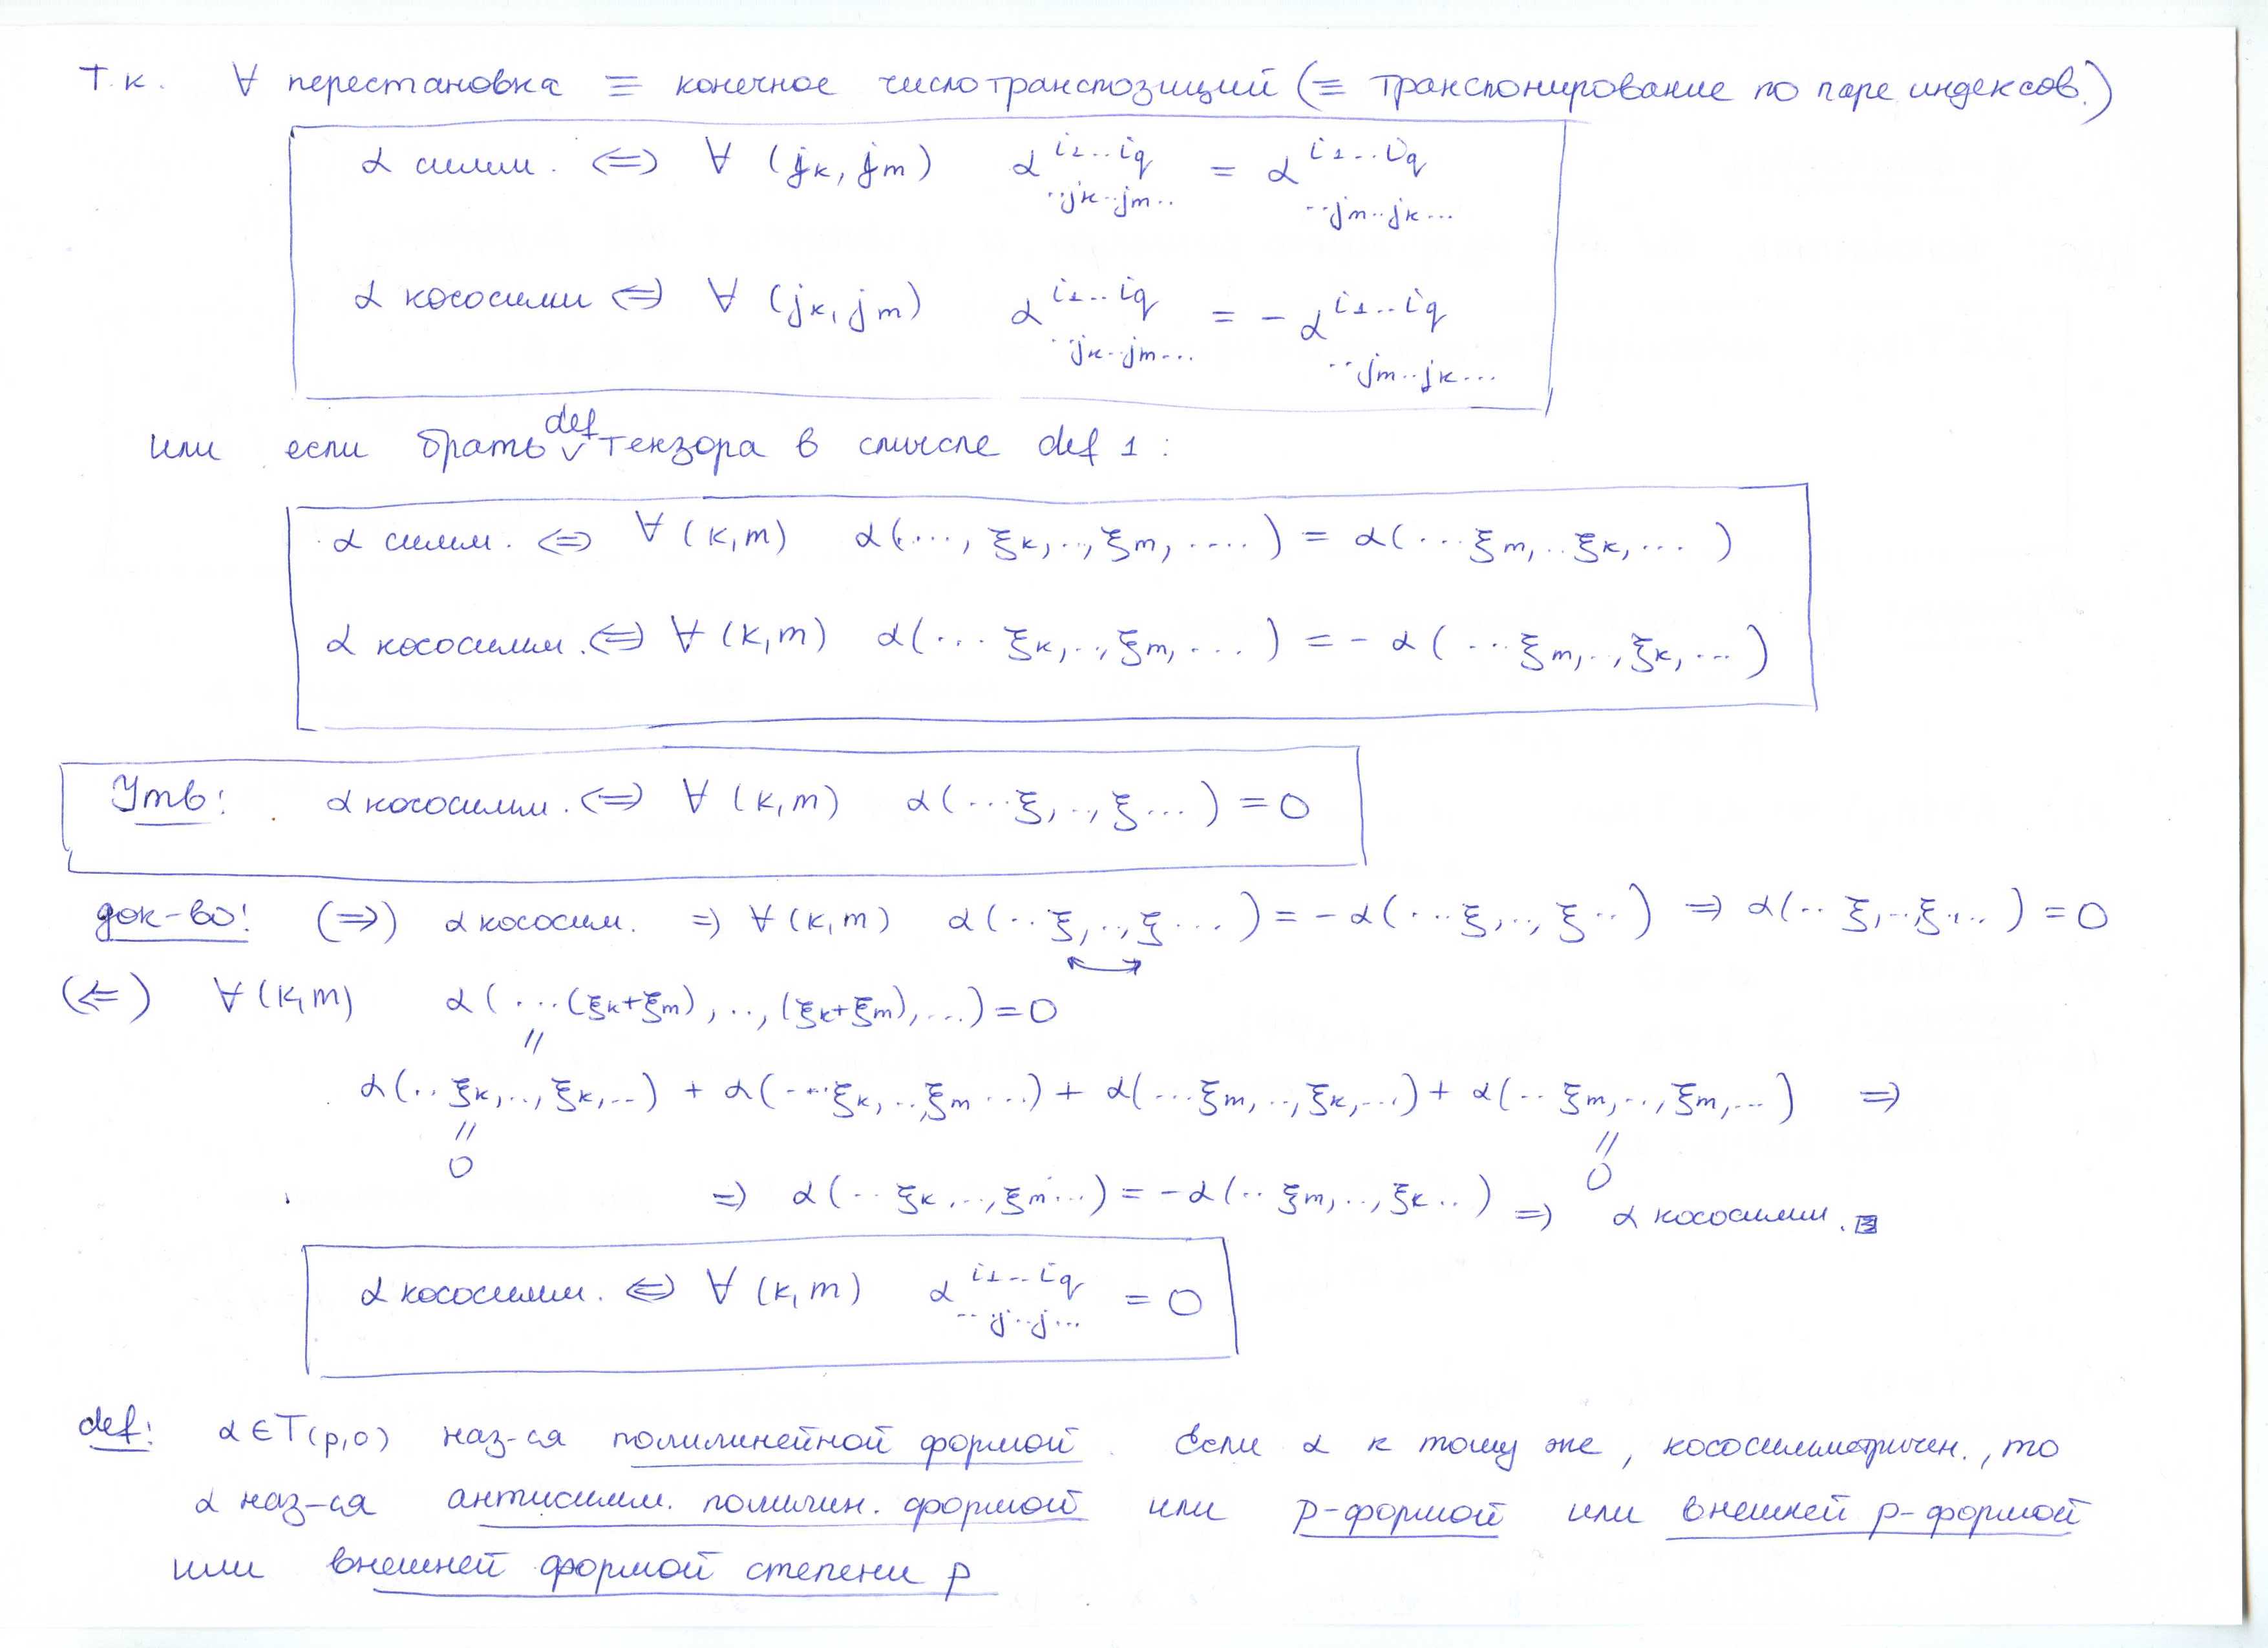 Т.к. ∀ перестановка ≡ конечное число транспозиций (≡ транспонирование по паре индексов.)
α симм. ⇔ ∀ (jₖ, jₘ) α^{i₁...i_q}_{..jₖ..jₘ..} = α^{i₁...i_q}_{..jₘ..jₖ...}
α кососимм ⇔ ∀ (jₖ, jₘ) α^{i₁...i_q}_{..jₖ..jₘ...} = - α^{i₁...i_q}_{..jₘ..jₖ...}
или если брать def тензора в смысле def 1 :
α симм. ⇔ ∀ (k,m) α(..., ξₖ,..,ξₘ, ....) = α(...ξₘ,..ξₖ,...)
α кососимм. ⇔ ∀ (k,m) α(... ξₖ,..,ξₘ,...) = - α(...ξₘ,..,ξₖ,...)
Утв: α кососимм. ⇔ ∀ (k,m) α(...ξ,..,ξ...) = 0
док-во: (⇒) α кососим. ⇒ ∀ (k,m) α(..ξ,..,ξ...) = - α(...ξ,..,ξ..) ⇒ α(..ξ,..,ξ...) = 0
(⇐) ∀ (k,m) α(...(ξₖ+ξₘ),..,(ξₖ+ξₘ),...) = 0
||
α(..ξₖ,..,ξₖ,..) + α(...ξₖ,..,ξₘ...) + α(...ξₘ,..,ξₖ,...) + α(..ξₘ,..,ξₘ,...) ⇒
|| ||
0 0
⇒ α(..ξₖ,..,ξₘ...) = - α(..ξₘ,..,ξₖ..) ⇒ α кососимм.
α кососимм. ⇔ ∀ (k,m) α^{i₁...i_q}_{..j..j...} = 0
def: α ∈ T(p,0) наз-ся полилинейной формой. Если α к тому же, кососимметричен., то
α наз-ся антисимм. полилин. формой или p-формой или внешней p-формой
или внешней формой степени p